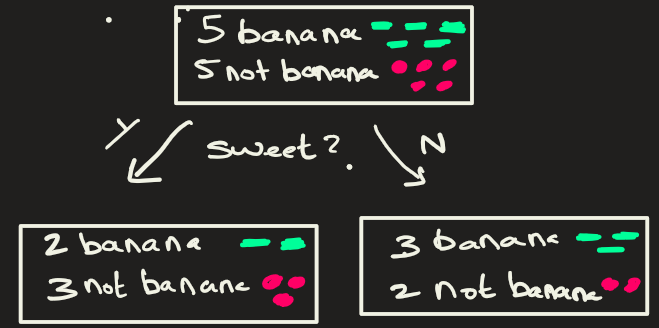 5 banana
5 not banana
Y
sweet?
N
2 banana
3 not banana
3 banana
2 not banana